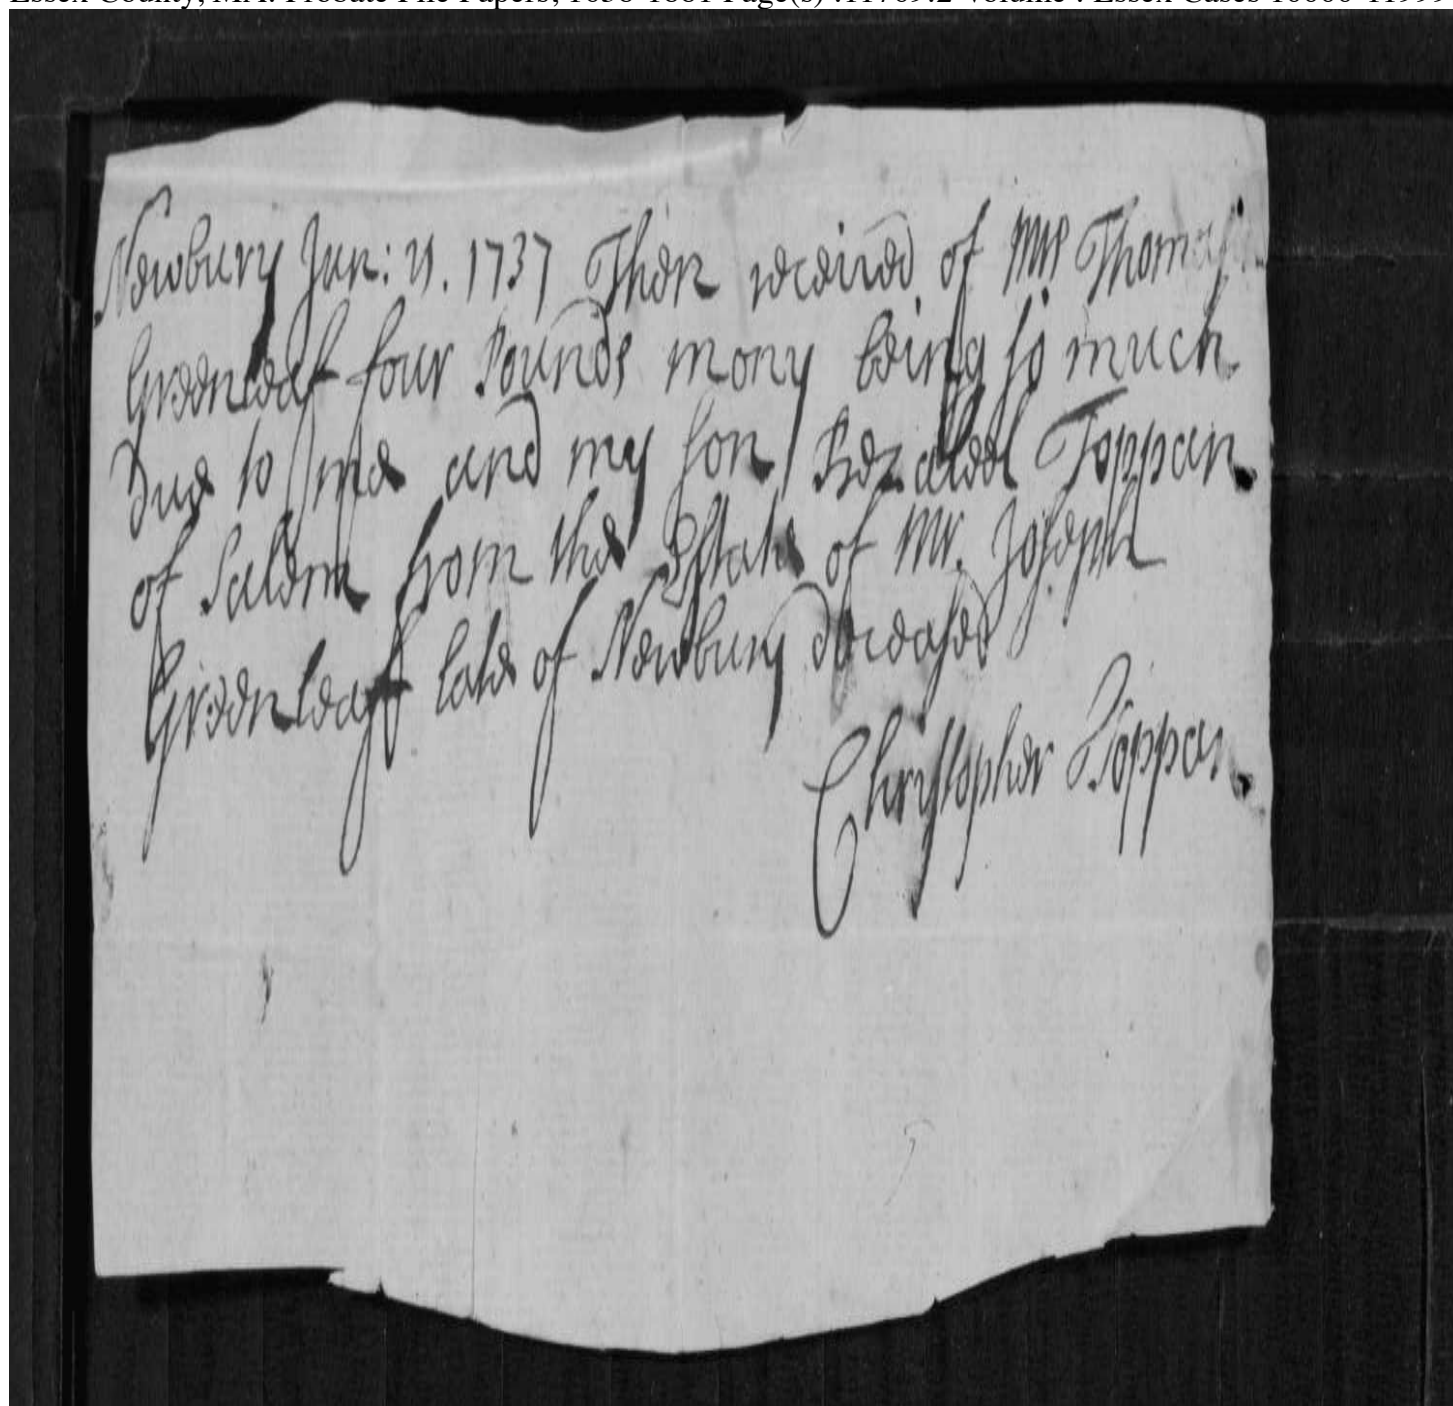 Essex County, MA: Probate File Papers, 1638-1881 Page(s) :11769:2 Volume : Essex Cases 10000-11999
Newbury Jun: 21. 1737 Then received of Mrs
Greenleaf four Pounds mony being so much
Due to me and my son Bezaleel Toppan
of Salem from the Estate of Mr. Joseph
Greenleaf late of Newbury deceased
Christopher Toppan